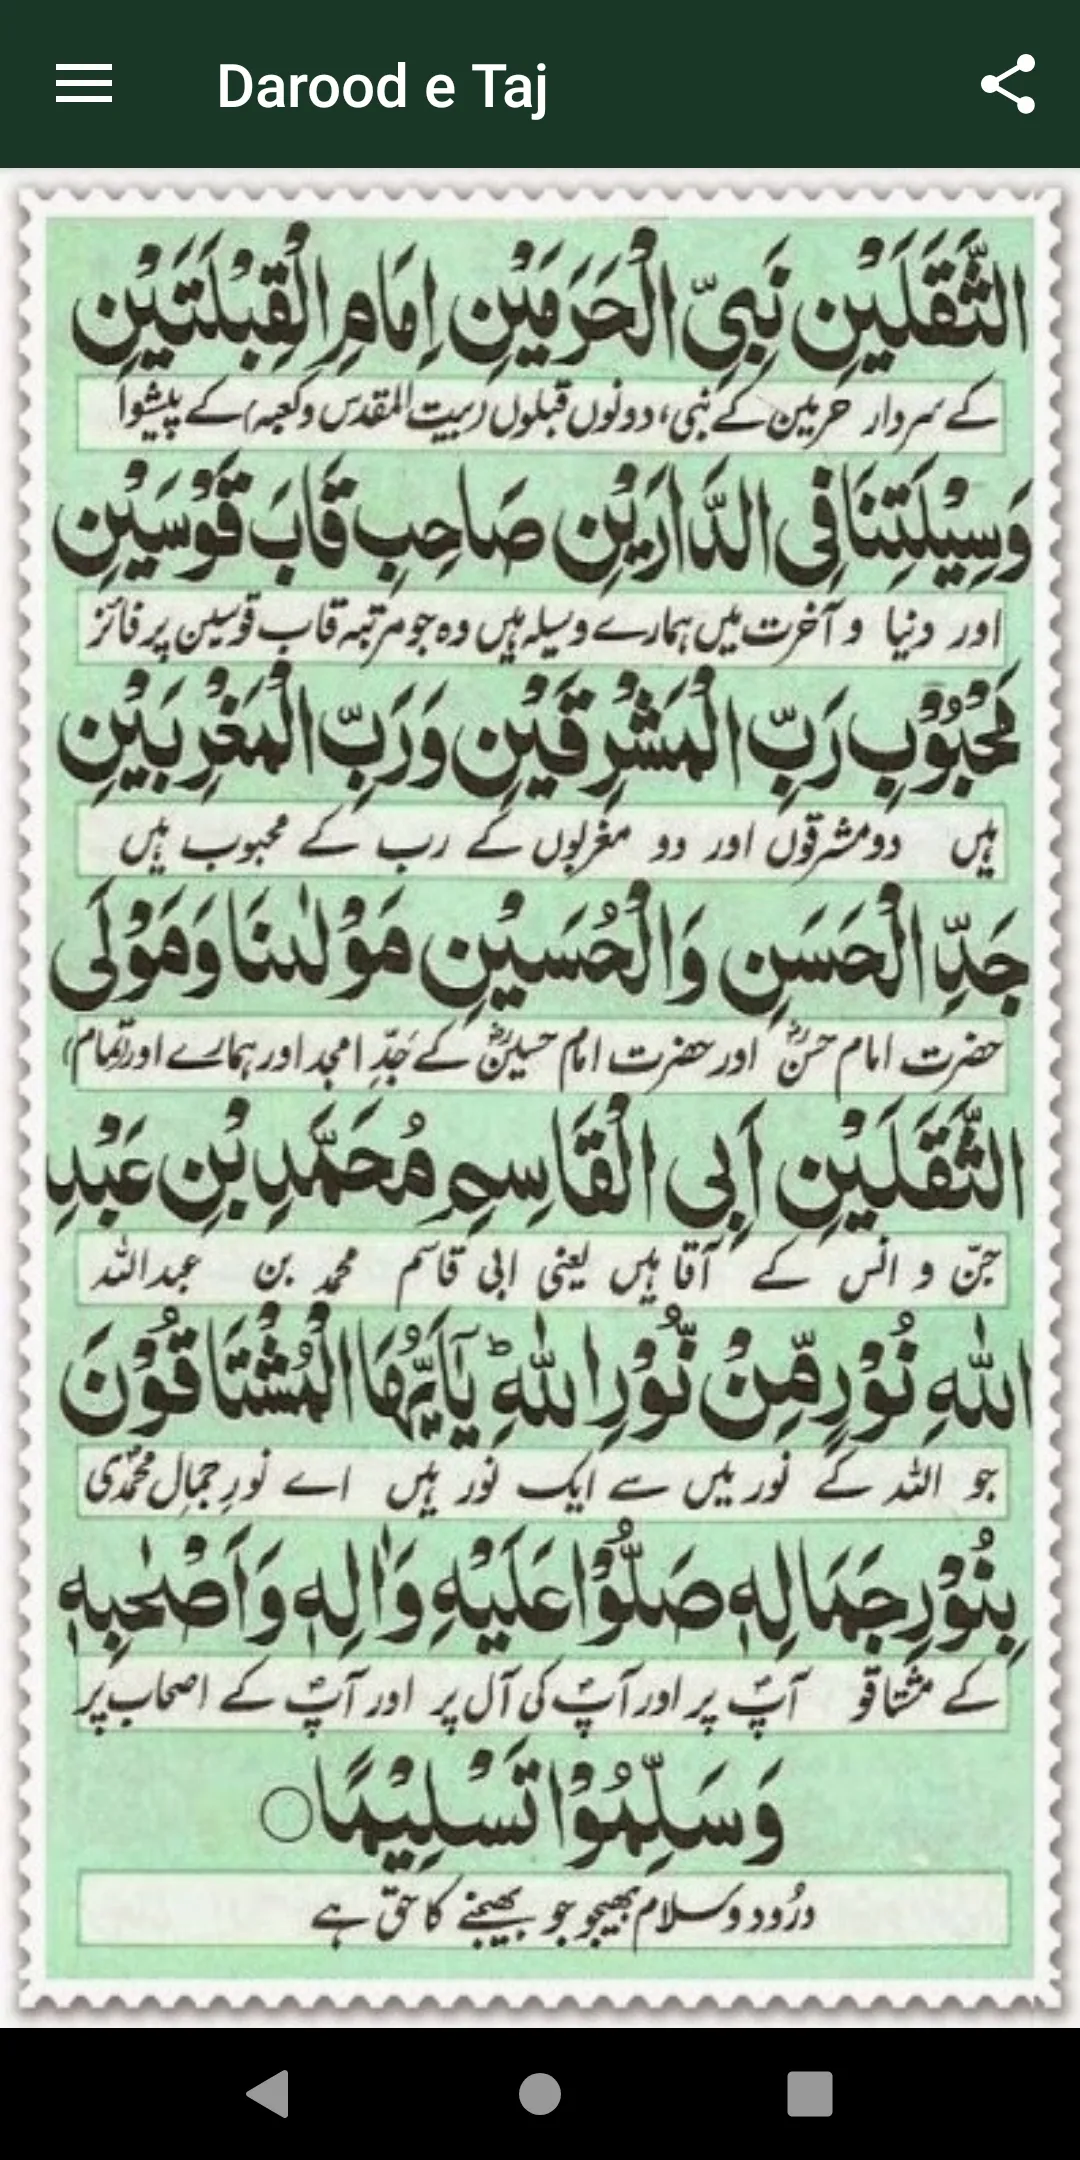 Darood e Taj
الثَّقَلَيْنِ نَبِيِّ الْحَرَمَيْنِ اِمَامِ الْقِبْلَتَيْنِ
کے سردار حرمین کے نبی، دونوں قبلوں (بیت المقدس وکعبہ) کے پیشوا
وَسِيْلَتِنَا فِی الدَّارَيْنِ صَاحِبِ قَابَ قَوْسَيْنِ
اور دنیا و آخرت میں ہمارے وسیلہ ہیں وہ جو مرتبہ قاب قوسین پر فائز
مَحْبُوْبِ رَبِّ الْمَشْرِقَيْنِ وَرَبِّ الْمَغْرِبَيْنِ
ہیں دو مشرقوں اور دو مغربوں کے رب کے محبوب ہیں
جَدِّ الْحَسَنِ وَالْحُسَيْنِ مَوْلٰىنَا وَمَوْلَى
حضرت امام حسنؓ اور حضرت امام حسینؓ کے جَدِّ امجد اور ہمارے اور (تمام)
الثَّقَلَيْنِ اَبِی الْقَاسِمِ مُحَمَّدِ بْنِ عَبْدِ
جنّ و انس کے آقا ہیں یعنی ابی قاسم محمد بن عبداللہ
اللّٰهِ نُوْرٍ مِّنْ نُّوْرِ اللّٰهِ ؕ يٰٓاَيُّهَا الْمُشْتَاقُوْنَ
جو اللہ کے نور میں سے ایک نور ہیں اے نورِ جمالِ محمدؐی
بِنُوْرِ جَمَالِهٖ صَلُّوْا عَلَيْهِ وَاٰلِهٖ وَاَصْحٰبِهٖ
کے مشتاقو آپؐ پر اور آپؐ کی آل پر اور آپؐ کے اصحاب پر
وَسَلِّمُوْا تَسْلِيْمًا ○
درُود وسلام بھیجو جو بھیجنے کا حق ہے